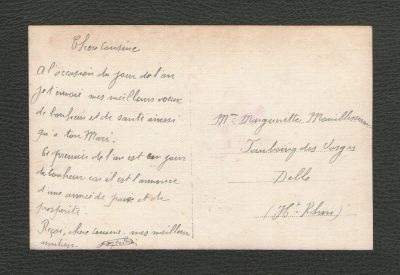 Chère Cousine
A l'occasion du jour de l'an
je t'envoie mes meilleurs vœux
de bonheur et de santé ainsi
qu'à ton Mari.
Ce premier de l'an est un jour
de bonheur car il est l'annonce
d'une année de paix et de
prospérité.
Reçois, chère cousine, mes meilleurs
Mme Marguerite
Faubourg des Vosges
Delle
(Ht Rhin)